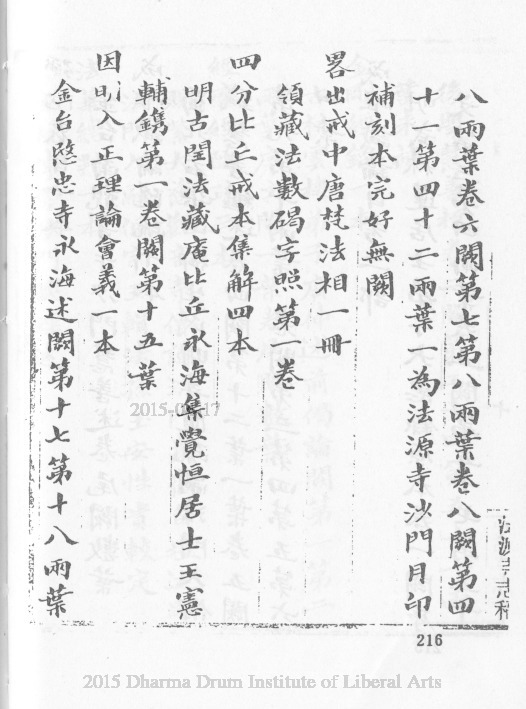 八兩葉卷六闕第七第八兩葉卷八闕第四
十一第四十二兩葉一為法源寺沙門月印
補刻本完好無闕
畧出戒中唐梵法相一冊
領藏法數碣字照第一卷
四分比丘戒本集解四本
明古閏法藏庵比丘永海集覺惺居士王憲
輔鐫第一卷闕第十五葉
因明入正理論會義一本
金台愍忠寺永海述闕第十七第十八兩葉
法源寺志稿
216
2015 Dharma Drum Institute of Liberal Arts